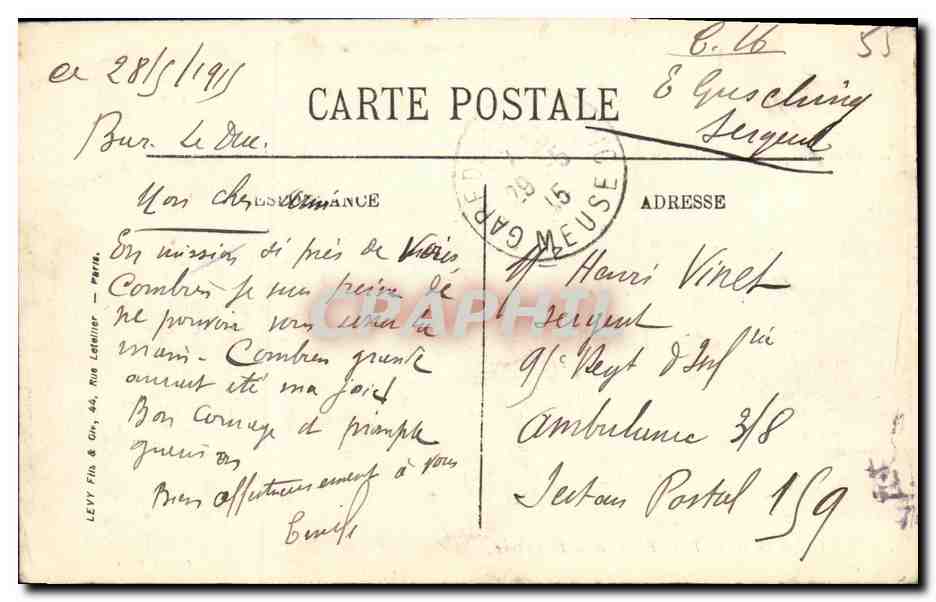 C. 16
55
ce 28/5/1915
Bar. Le Duc.
CARTE POSTALE
E Gusching
Sergent
GARE MEUSE
29 5 15
CORRESPONDANCE
ADRESSE
Mon cher ami
En mission si près de vous,
Combien je suis peiné de
ne pouvoir vous serrer la
main. Combien grande
aurait été ma joie!
Bon courage et prompte
guérison
Bien affectueusement à vous
Emile
Mr Henri Vinet
Sergent
95e Regt d'Infrie
Ambulance 3/8
Secteur Postal 159
LEVY Fils & Cie, 44, Rue Letellier — Paris.
CPAPHIL